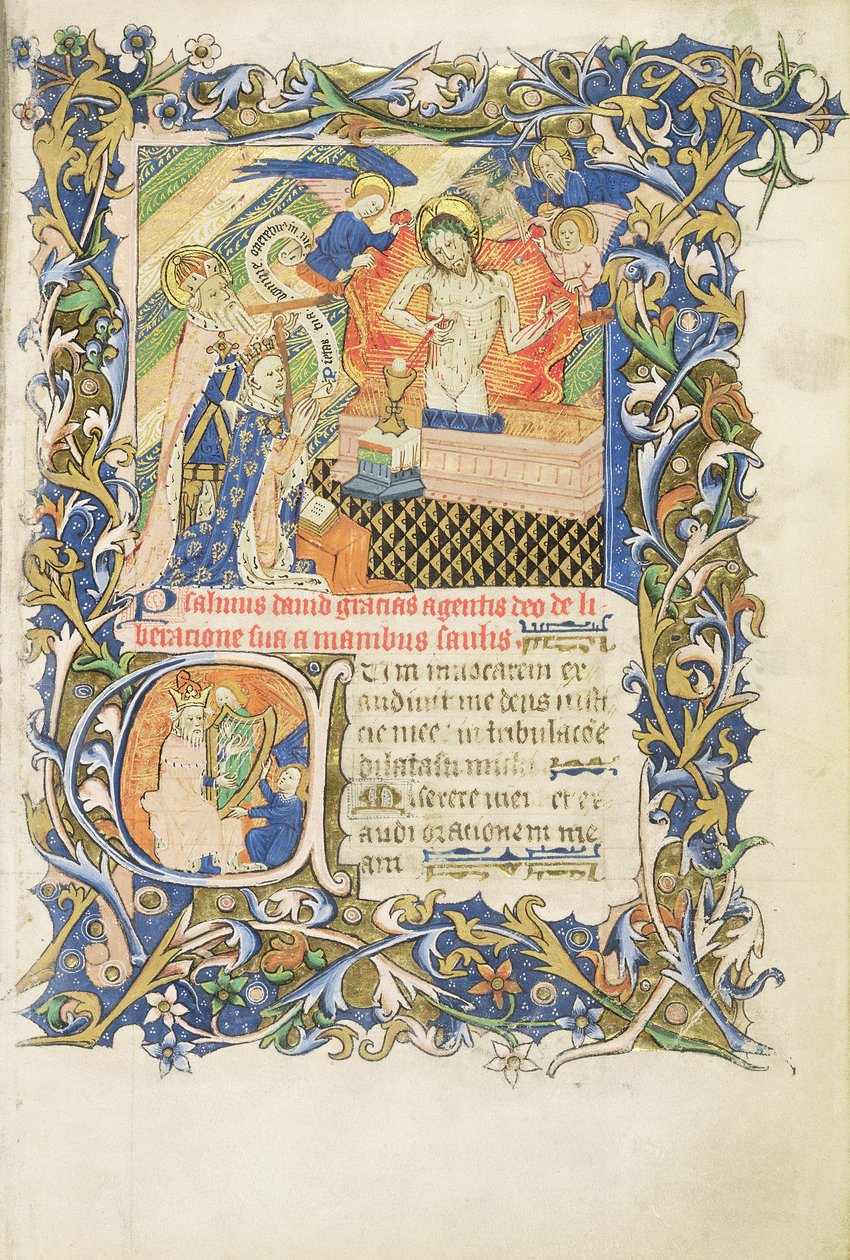 8
Pietas tua
domine operetur in me
Psalmus dauid gracias agentis deo de li-
beracione sua a manibus saulis.
Cum inuocarem ex-
audiuit me deus iusti
cie mee: in tribulacõe
dilatasti michi
Miserere mei et ex
audi orationem me
am